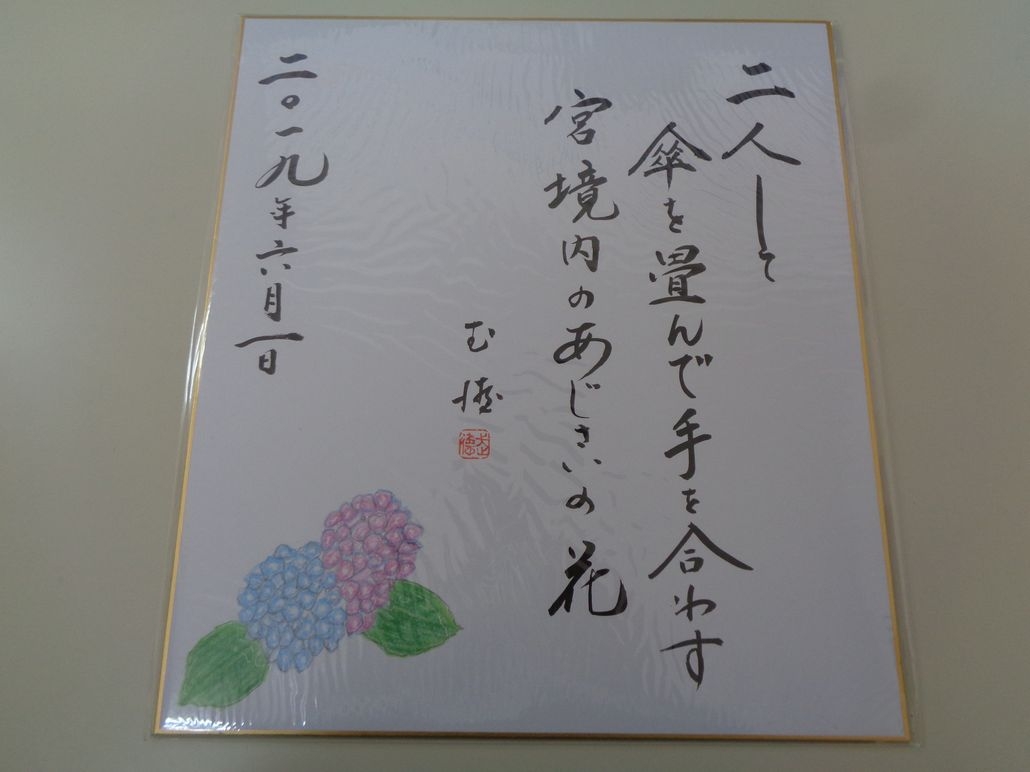 二人して
傘を畳んで手を合わす
宮境内のあじさいの花
二〇一九年六月一日